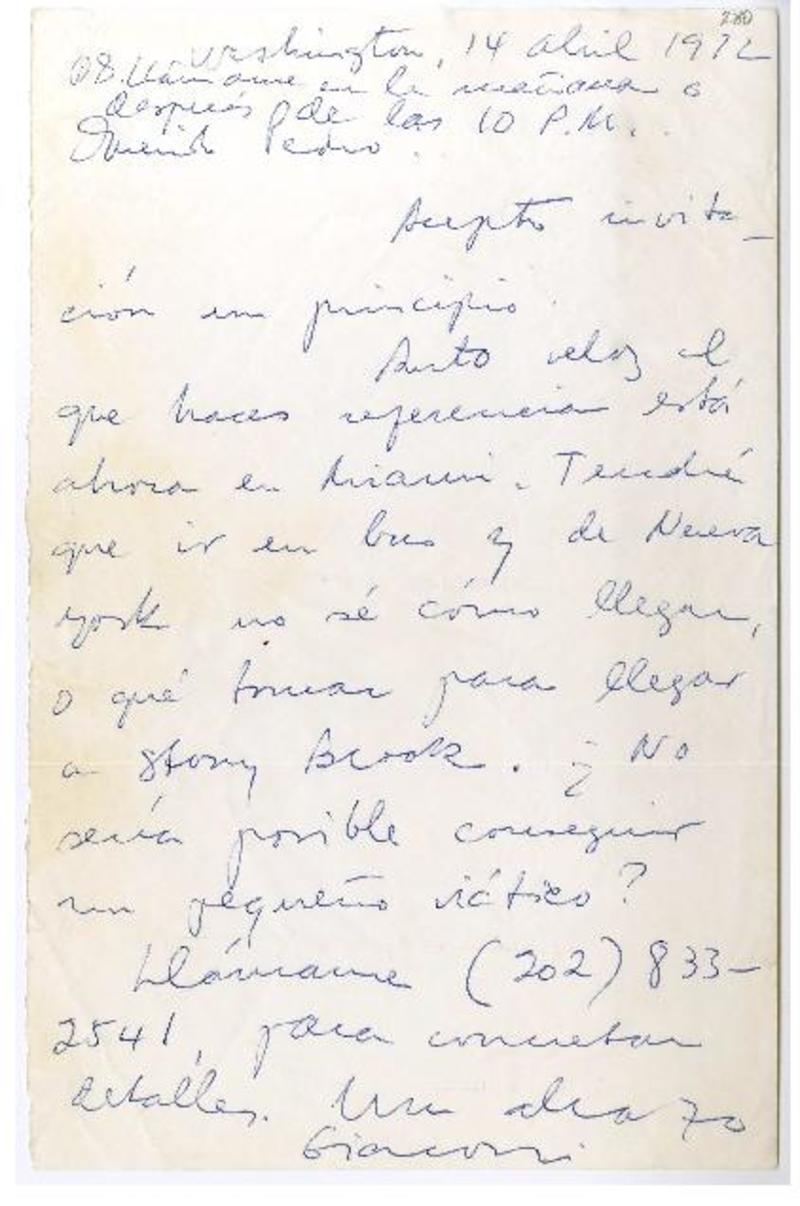 280
Washington, 14 abril 1972
OB. Llámame en la mañana o
después de las 10 P.M.
Querido Pedro.
Acepto invita-
ción en principio.
Auto veloz al
que haces referencia está
ahora en Miami. Tendré
que ir en bus y de Nueva
York no sé cómo llegar,
o qué tomar para llegar
a Stony Brook. ¿ No
sería posible conseguir
un pequeño viático?
Llámame (202) 833-
2541, para concretar
detalles. Un abrazo
Giaconi